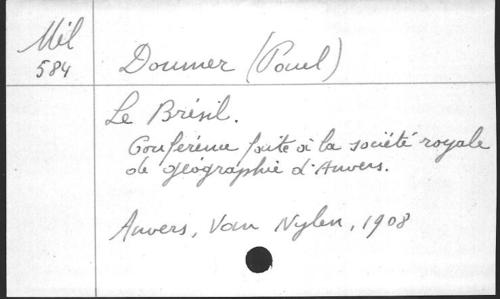 Mil
584
Doumer (Paul)
Le Brésil.
Conférence faite à la société royale
de géographie d'Anvers.
Anvers, Van Nylen, 1908